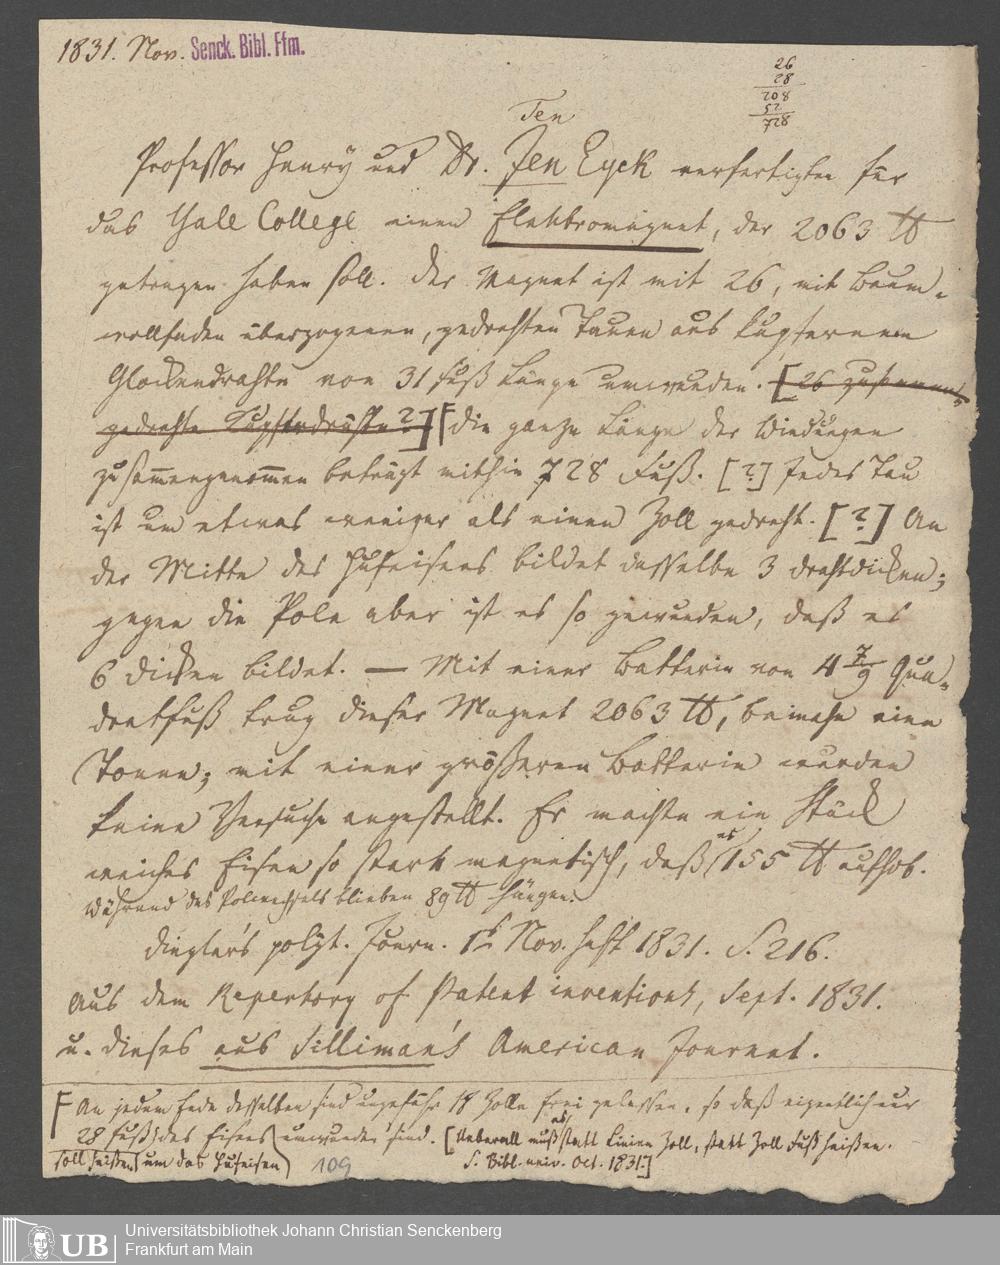 1831. Nov. Senck. Bibl. Ffm.
26
28
208
52
728
Ten
Professor Henry und Dr. Jen Eyck verfertigten für
das Yale College einen Elektromagnet, der 2063 ℔
getragen haben soll. Der Magnet ist mit 26, mit Baum-
wollfaden überzogenen, gedrehten Tauen aus kupfernem
Glockendrahte von 31 Fuß Länge umwunden. [26 zusammen-
gedrehte Kupferdrähte?] F die ganze Länge der Windungen
zusam̅engenom̅en beträgt mithin 728 Fuß. [?] Jedes Tau
ist um etwas weniger als einen Zoll gedreht. [?] An
der Mitte des Hufeisens bildet dasselbe 3 Drahtdicken;
gegen die Pole aber ist es so gewunden, daß es
6 Dicken bildet. — Mit einer Batterie von 4 7/9 Qua-
dratfuß trug dieser Magnet 2063 ℔, beinahe eine
Tonne; mit einer größeren Batterie wurden
keine Versuche angestellt. Er machte ein Stück
weiches Eisen so stark magnetisch, daß es 155 ℔ aufhob.
Während des Polwechsels blieben 89 ℔ hängen.
Dingler's polyt. Journ. 1s Nov. Heft 1831. S. 216.
Aus dem Repertory of Patent inventions, Sept. 1831.
u. dieses aus Silliman's American Journal.
F An jedem Ende desselben sind ungefähr 18 Zolle frei gelassen, so daß eigentlich nur
28 Fuß des Eisens umwunden sind. [Ueberall muß es statt Linien Zoll, statt Zoll Fuß heißen.
soll heißen um das Hufeisen S. Bibl. univ. Oct. 1831.]
109
UB
Universitätsbibliothek Johann Christian Senckenberg
Frankfurt am Main